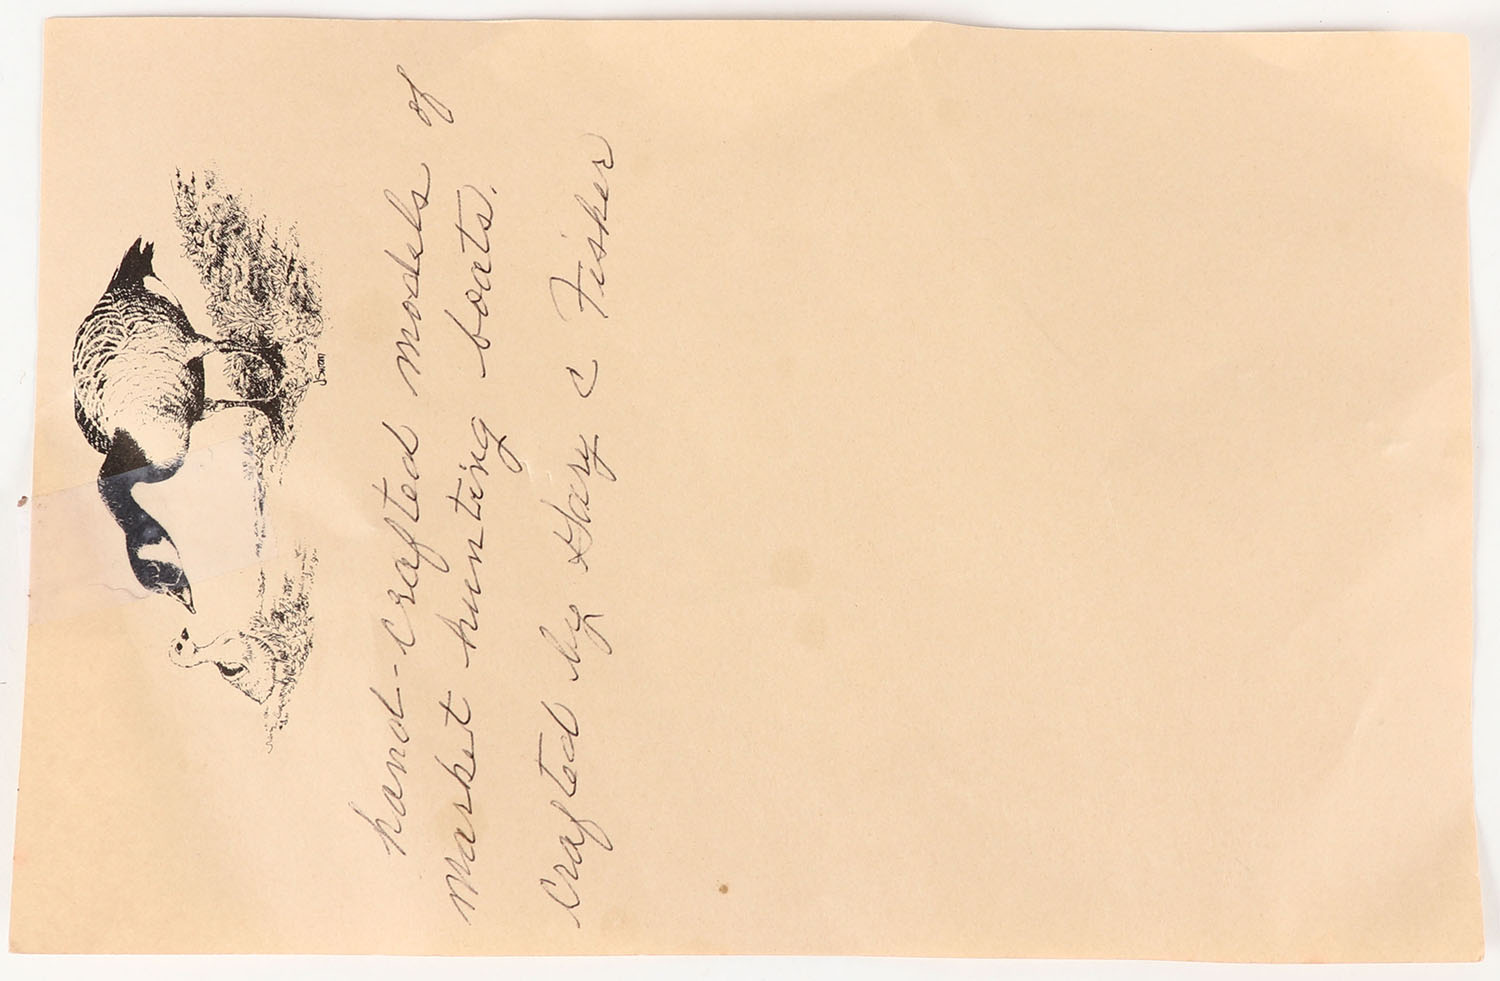 Swan
hand-crafted models of
market hunting boats.
Crafted by Gary C Fisher